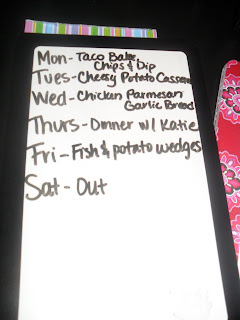 Mon - Taco Bake
Chips & Dip
Tues - Cheesy Potato Casserole
Wed - Chicken Parmesan
Garlic Bread
Thurs - Dinner w/ Katie
Fri - Fish & potato wedges
Sat - Out